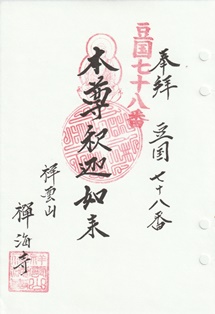 奉拝
豆国七十八番
豆国七十八番
本尊釈迦如来
祥雲山
禅海寺